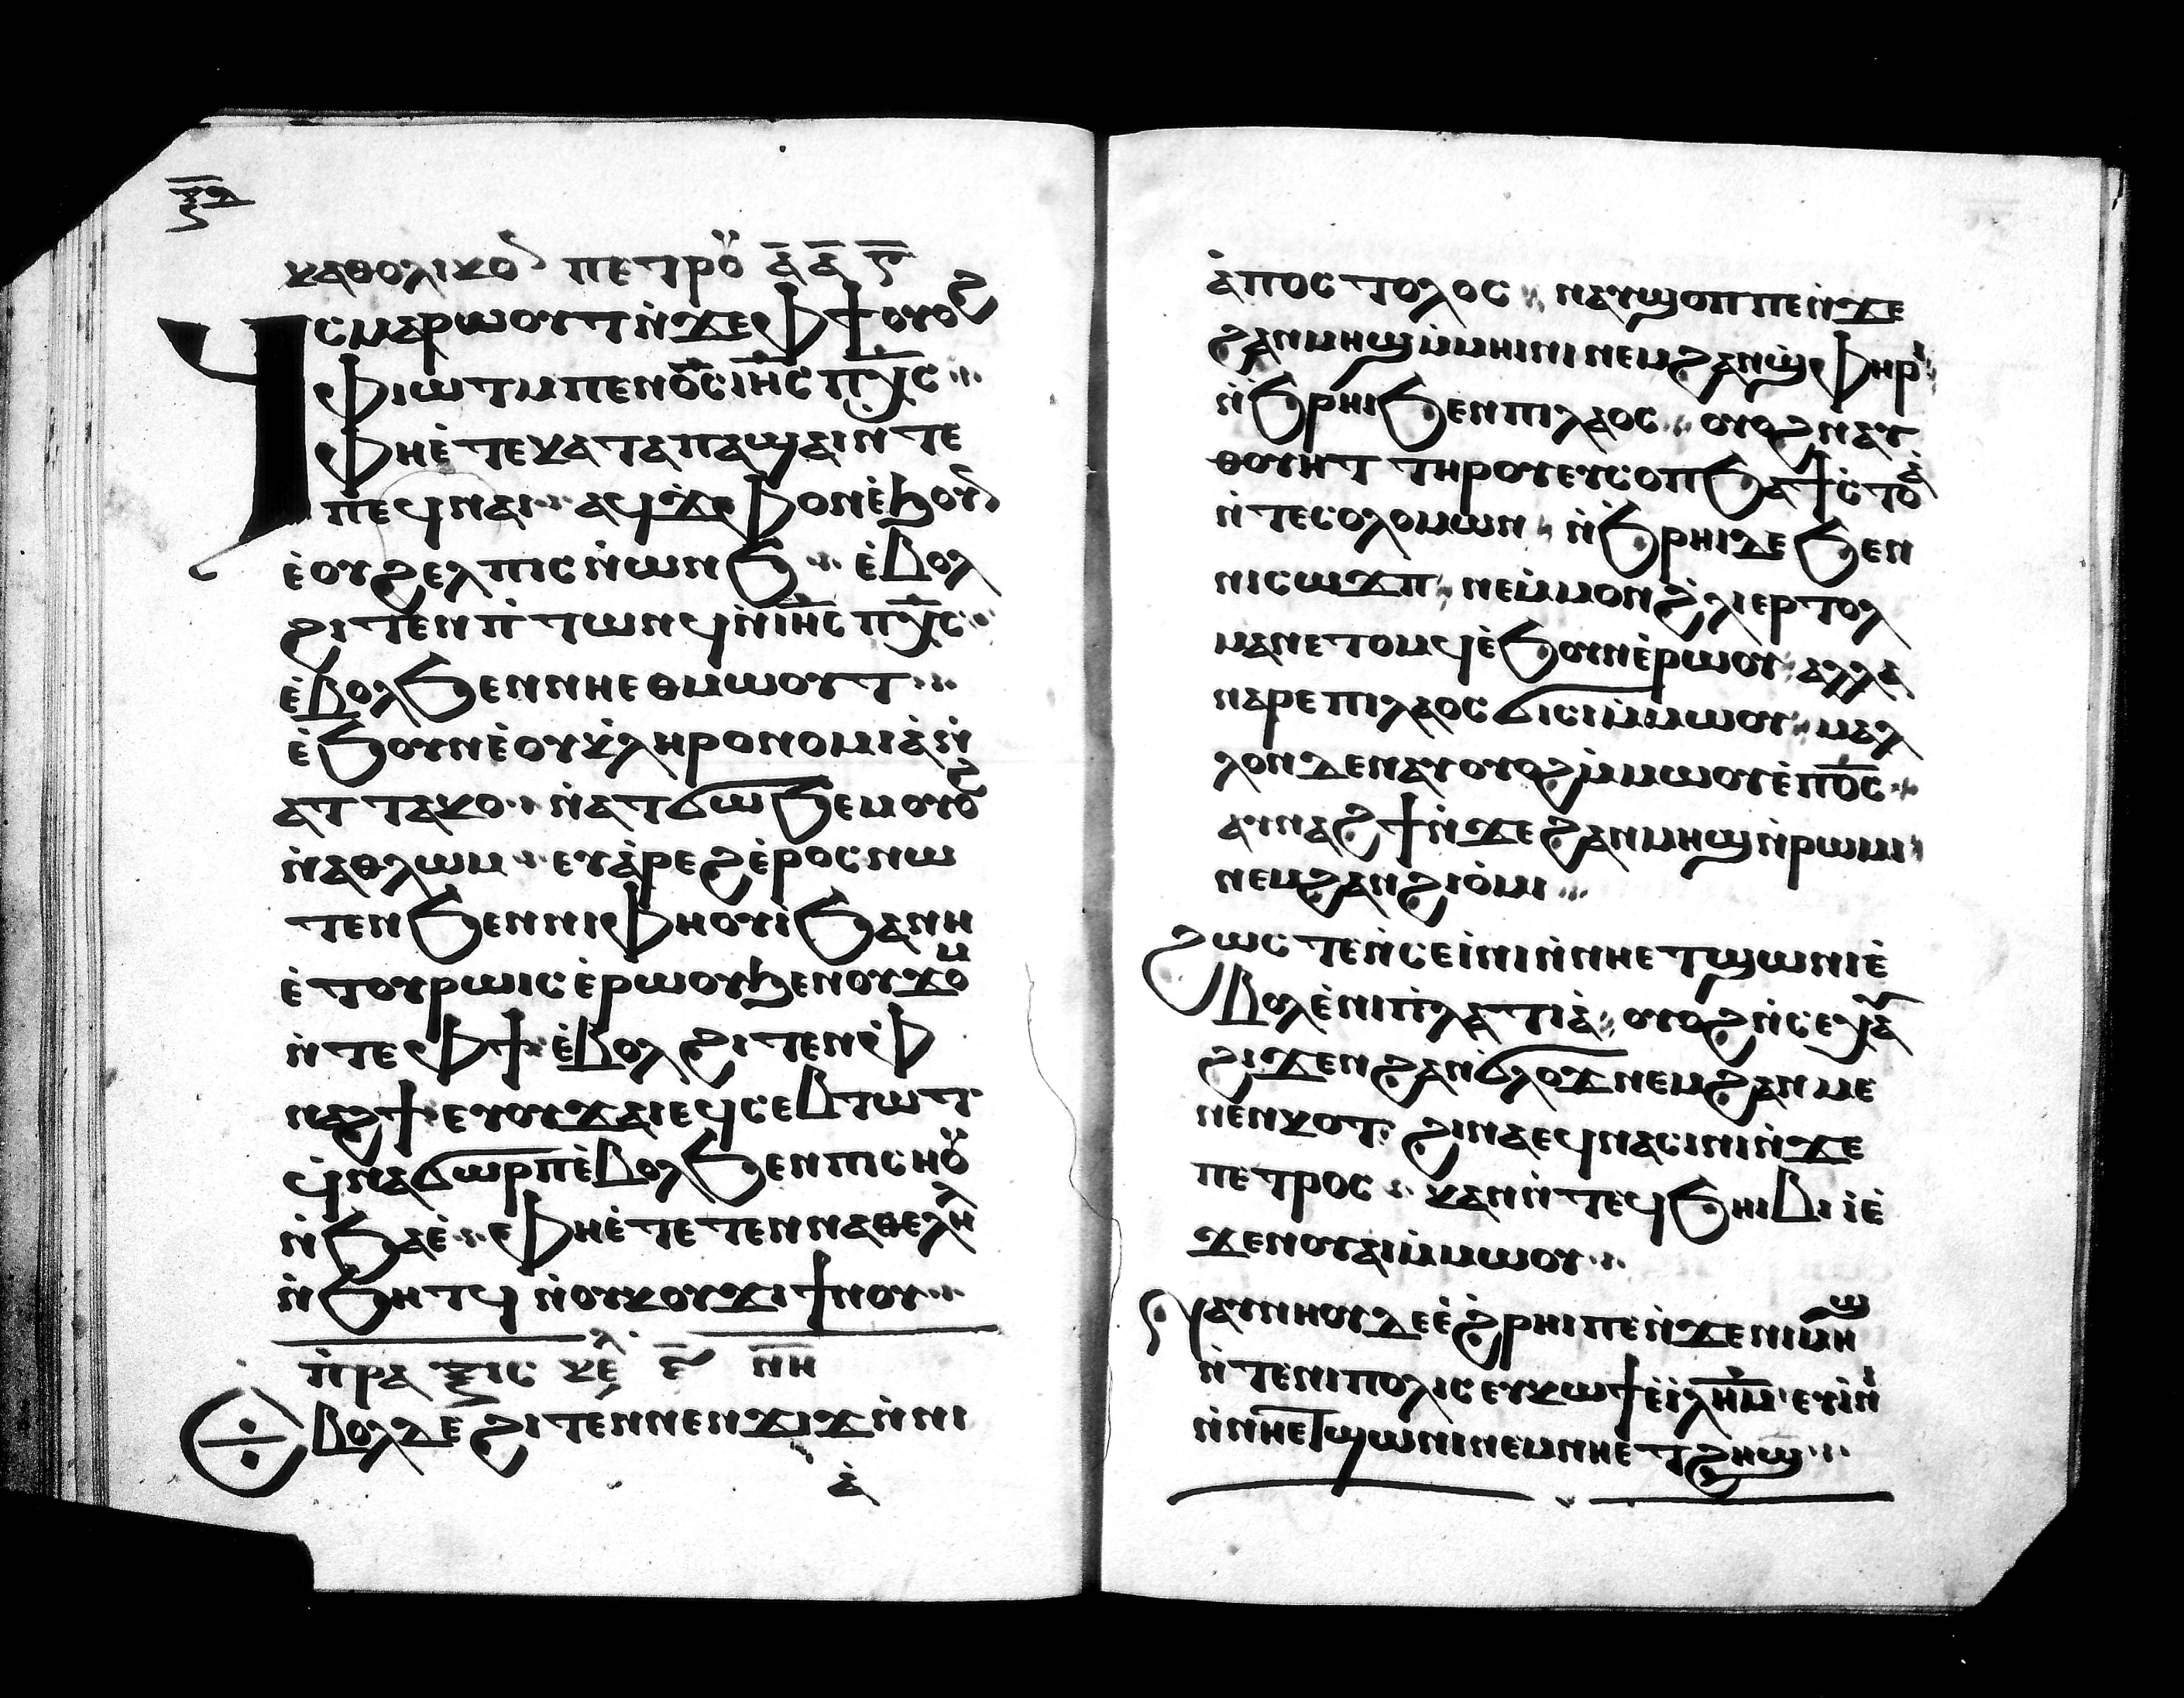 ⲝⲇ
ⲕⲁⲑⲟⲗⲓⲕⲟⲛ ⲡⲉⲧⲣⲟⲩ ⲁ̅ ⲁ̅ ⲋ̅
ϥ̀ⲥⲙⲁⲣⲱⲟⲩⲧ ⲛ̀ϫⲉ ⲫϯ ⲟⲩⲟϩ
ⲫⲓⲱⲧ ⲙⲡⲉⲛⲟ̅ⲥ̅ ⲓⲏ̅ⲥ̅ ⲡⲭ̅ⲥ̅
ⲫⲏⲉ̀ⲧⲉ ⲕⲁⲧⲁ ⲡⲁϣⲁⲓ ⲛ̀ⲧⲉ
ⲡⲉϥⲛⲁⲓ ⲁϥϫⲫⲟⲛ ⲉ̀ϧⲟⲩⲛ
ⲉ̀ⲟⲩϩⲉⲗⲡⲓⲥ ⲛ̀ⲱⲛϧ ⲉ̀ⲃⲟⲗ
ϩⲓⲧⲉⲛ ⲡ̀ⲧⲱⲛϥ ⲛ̀ⲓⲏ̅ⲥ̅ ⲡⲭ̅ⲥ̅
ⲉ̀ⲃⲟⲗ ϧⲉⲛ ⲛⲏⲉⲑⲙⲱⲟⲩⲧ
ⲉ̀ϧⲟⲩⲛ ⲉ̀ⲟⲩⲕ̀ⲗⲏⲣⲟⲛⲟⲙⲓⲁ̀ ⲛ̀
ⲁⲧⲧⲁⲕⲟ ⲛ̀ⲁⲧϭⲱϧⲉⲙ ⲟⲩⲟϩ
ⲛ̀ⲁⲑⲗⲱⲙ ⲉⲩⲁ̀ⲣⲉϩ ⲉ̀ⲣⲟⲥ ⲛⲱ
ⲧⲉⲛ ϧⲉⲛ ⲛⲓⲫⲏⲟⲩⲓ̀ ϧⲁ ⲛⲏ
ⲉ̀ⲧⲟⲩⲣⲱⲓⲥ ⲉ̀ⲣⲱⲟⲩ ϧⲉⲛ ⲟⲩϫⲟⲙ
ⲛ̀ⲧⲉ ⲫϯ ⲉ̀ⲃⲟⲗ ϩⲓⲧⲉⲛ ⲫ
ⲛⲁϩϯ ⲉⲩⲟⲩϫⲁⲓ ⲉϥⲥⲉⲃⲧⲱⲧ
ϥ̀ⲛⲁϭⲱⲣⲡ ⲉ̀ⲃⲟⲗ ϧⲉⲛ ⲡⲓⲥⲏⲟⲩ
ⲛ̀ϧⲁⲉ̀ ⲫⲏⲉ̀ⲧⲉⲧⲉⲛⲛⲁⲑⲉⲗⲏⲗ
ⲛ̀ϧⲏⲧϥ ⲛ̀ⲟⲩⲕⲟⲩϫⲓ ϯⲛⲟⲩ
ⲡ̀ⲣⲁⲝⲓⲥ ⲕⲉⲗ ⲉ̅ ⲛⲏ̅
ⲉⲃⲟⲗ ⲇⲉ ϩⲓⲧⲉⲛ ⲛⲉⲛϫⲓϫ ⲛ̀ⲛⲓ
ⲁ̀
ⲁ̀ⲡⲟⲥⲧⲟⲗⲟⲥ ⲛⲁⲩϣⲟⲡ ⲡⲉ ⲛ̀ϫⲉ
ϩⲁⲛⲙⲏϣ ⲙ̀ⲙⲏⲓⲛⲓ ⲛⲉⲙ ϩⲁⲛϣ̀ⲫⲏⲣⲓ
ⲛ̀ϧⲣⲏⲓ ϧⲉⲛ ⲡⲓⲗⲁⲟⲥ ⲟⲩⲟϩ ⲛⲁⲩ
ⲑⲟⲩⲏⲧ ⲧⲏⲣⲟⲩ ⲉⲩⲥⲟⲡ ϧⲁ ϯⲥ̀ⲧⲟⲁ̀
ⲛ̀ⲧⲉ ⲥⲟⲗⲟⲙⲱⲛ ⲛ̀ϧⲣⲏⲓ ⲇⲉ ϧⲉⲛ
ⲛⲓⲥⲱϫⲡ ⲛⲉⲙ̀ⲙⲟⲛ ϩ̀ⲗⲓ ⲉⲣⲧⲟⲗ
ⲙⲁⲛ ⲉⲧⲟⲙϥ ⲉ̀ϧⲟⲩⲛ ⲉ̀ⲣⲱⲟⲩ ⲁⲗⲗⲁ
ⲛⲁⲣⲉ ⲡⲓⲗⲁⲟⲥ ϭⲓⲥⲓ ⲙ̀ⲙⲱⲟⲩ ⲙⲁⲗ
ⲗⲟⲛ ⲇⲉ ⲛⲁⲩⲟⲩⲟϩ ⲙ̀ⲙⲱⲟⲩ ⲉ̀ⲡⲟ̅ⲥ̅
ⲁⲩⲛⲁϩϯ ⲛ̀ϫⲉ ϩⲁⲛⲙⲏϣ ⲛ̀ⲣⲱⲙⲓ
ⲛⲉⲙ ϩⲁⲛϩⲓⲟ̀ⲙⲓ
ϩⲱⲥⲧⲉ ⲛ̀ⲥⲉⲓ̀ⲛⲓ ⲛ̀ⲛⲏⲉⲧϣⲱⲛⲓ ⲉ̀
ⲃⲟⲗ ⲉ̀ⲛⲓⲡ̀ⲗⲁⲧⲓⲁ̀ ⲟⲩⲟϩ ⲛ̀ⲥⲉⲭⲁⲩ
ϩⲓϫⲉⲛ ϩⲁⲛϭⲗⲟϫ ⲛⲉⲙ ϩⲁⲛⲙⲉ
ⲛⲉⲛⲕⲟⲧ ϩⲓⲛⲁ ⲉϥⲛⲁⲥⲓⲛⲓ ⲛ̀ϫⲉ
ⲡⲉⲧⲣⲟⲥ ⲕⲁⲛ ⲛ̀ⲧⲉϥϧⲏⲓⲃⲓ ⲓ̀ ⲉ̀
ϫⲉⲛ ⲟⲩⲁⲓ ⲙ̀ⲙⲱⲟⲩ
ⲛⲁⲩⲛⲏⲟⲩ ⲇⲉ ⲉ̀ϩ̀ⲣⲏⲓ ⲡⲉ ⲛ̀ϫⲉ ⲛⲓⲙⲏϣ
ⲛ̀ⲧⲉ ⲛⲓⲡⲟⲗⲓⲥ ⲉⲩⲕⲱϯ ⲉ̀ⲓ̀ⲗⲏ̅ⲙ̅ ⲉⲩⲓ̀ⲛⲓ
ⲛ̀ⲛⲏⲉⲧϣⲱⲛⲓ ⲛⲉⲙ ⲛⲏⲉⲧϩⲏϣ